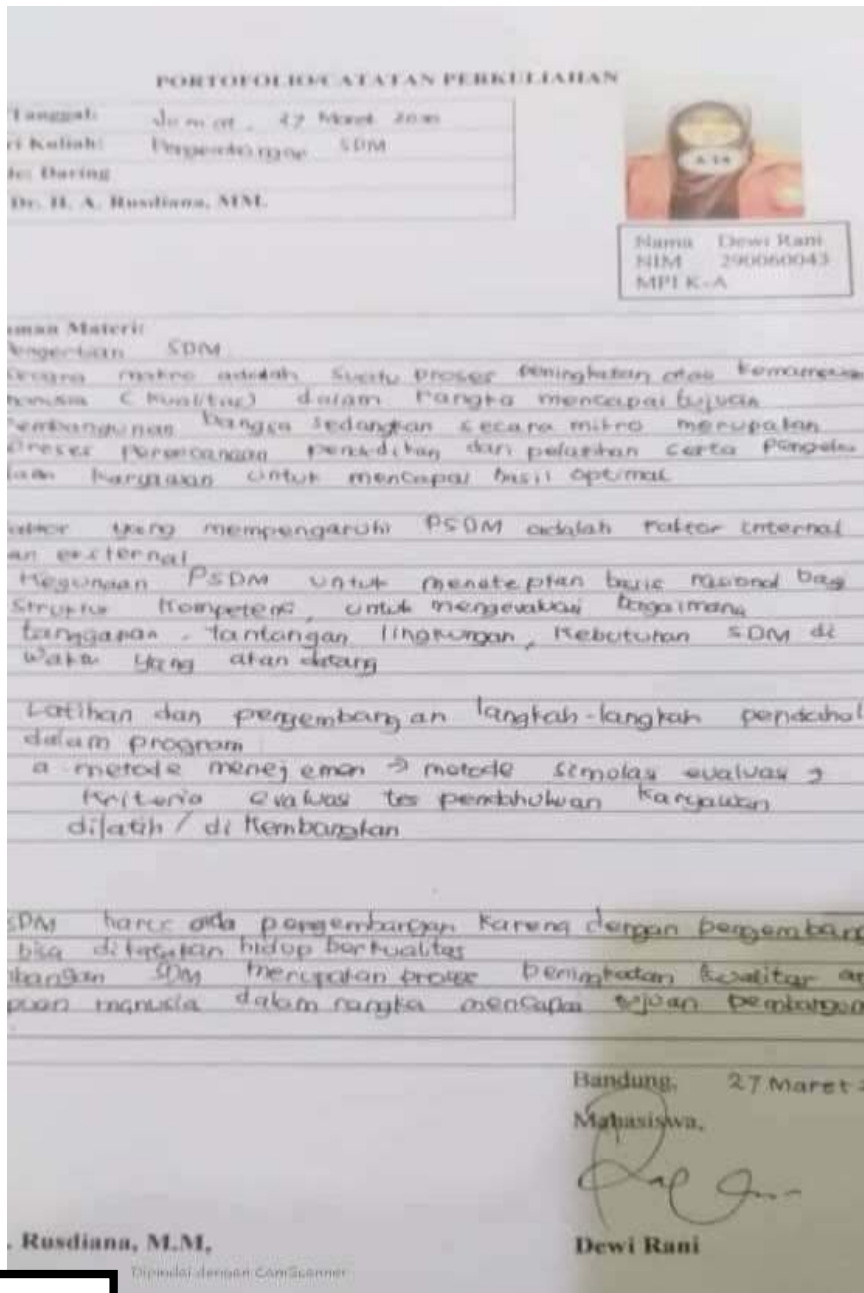 PORTOFOLIO/CATATAN PERKULIAHAN
Tanggal: Jumat, 27 Maret
ri Kuliah: SDM
de: Daring
Dr. H. A. Rusdiana, MM.
Nama Dewi Rani
NIM 290060043
MPI K-A
uman Materi:
Pengertian SDM
secara makro adalah suatu proses peningkatan atau kemampuan
manusia (kualitas) dalam rangka mencapai tujuan
Pembangunan bangsa sedangkan secara mikro merupakan
Proses Perencanaan pendidikan dan pelatihan serta pengelo
laan karyawan untuk mencapai hasil optimal
aktor yang mempengaruhi PSDM adalah faktor internal
an external
Kegunaan PSDM untuk basic rasional bagi
Struktur kompetensi, untuk mengevaluasi bagaimana
tanggapan, tantangan lingkungan, kebutuhan SDM di
waktu yang akan datang
Latihan dan pengembangan langkah-langkah pendahul
dalam program
a metode menejemen → metode simolas evaluas →
kriteria evaluas tes pendahuluan karyawan
dilatih / di kembangkan
SDM harus ada pengembangan karena dengan pengembang
bisa dikatakan hidup berkualitas
mbangan SDM merupakan proses peningkatan kualitas at
puan manusia dalam rangka mencapai tujuan pembangun
Bandung, 27 Maret 2
Mahasiswa,
. Rusdiana, M.M,
Dewi Rani
Dipindai dengan CamScanner